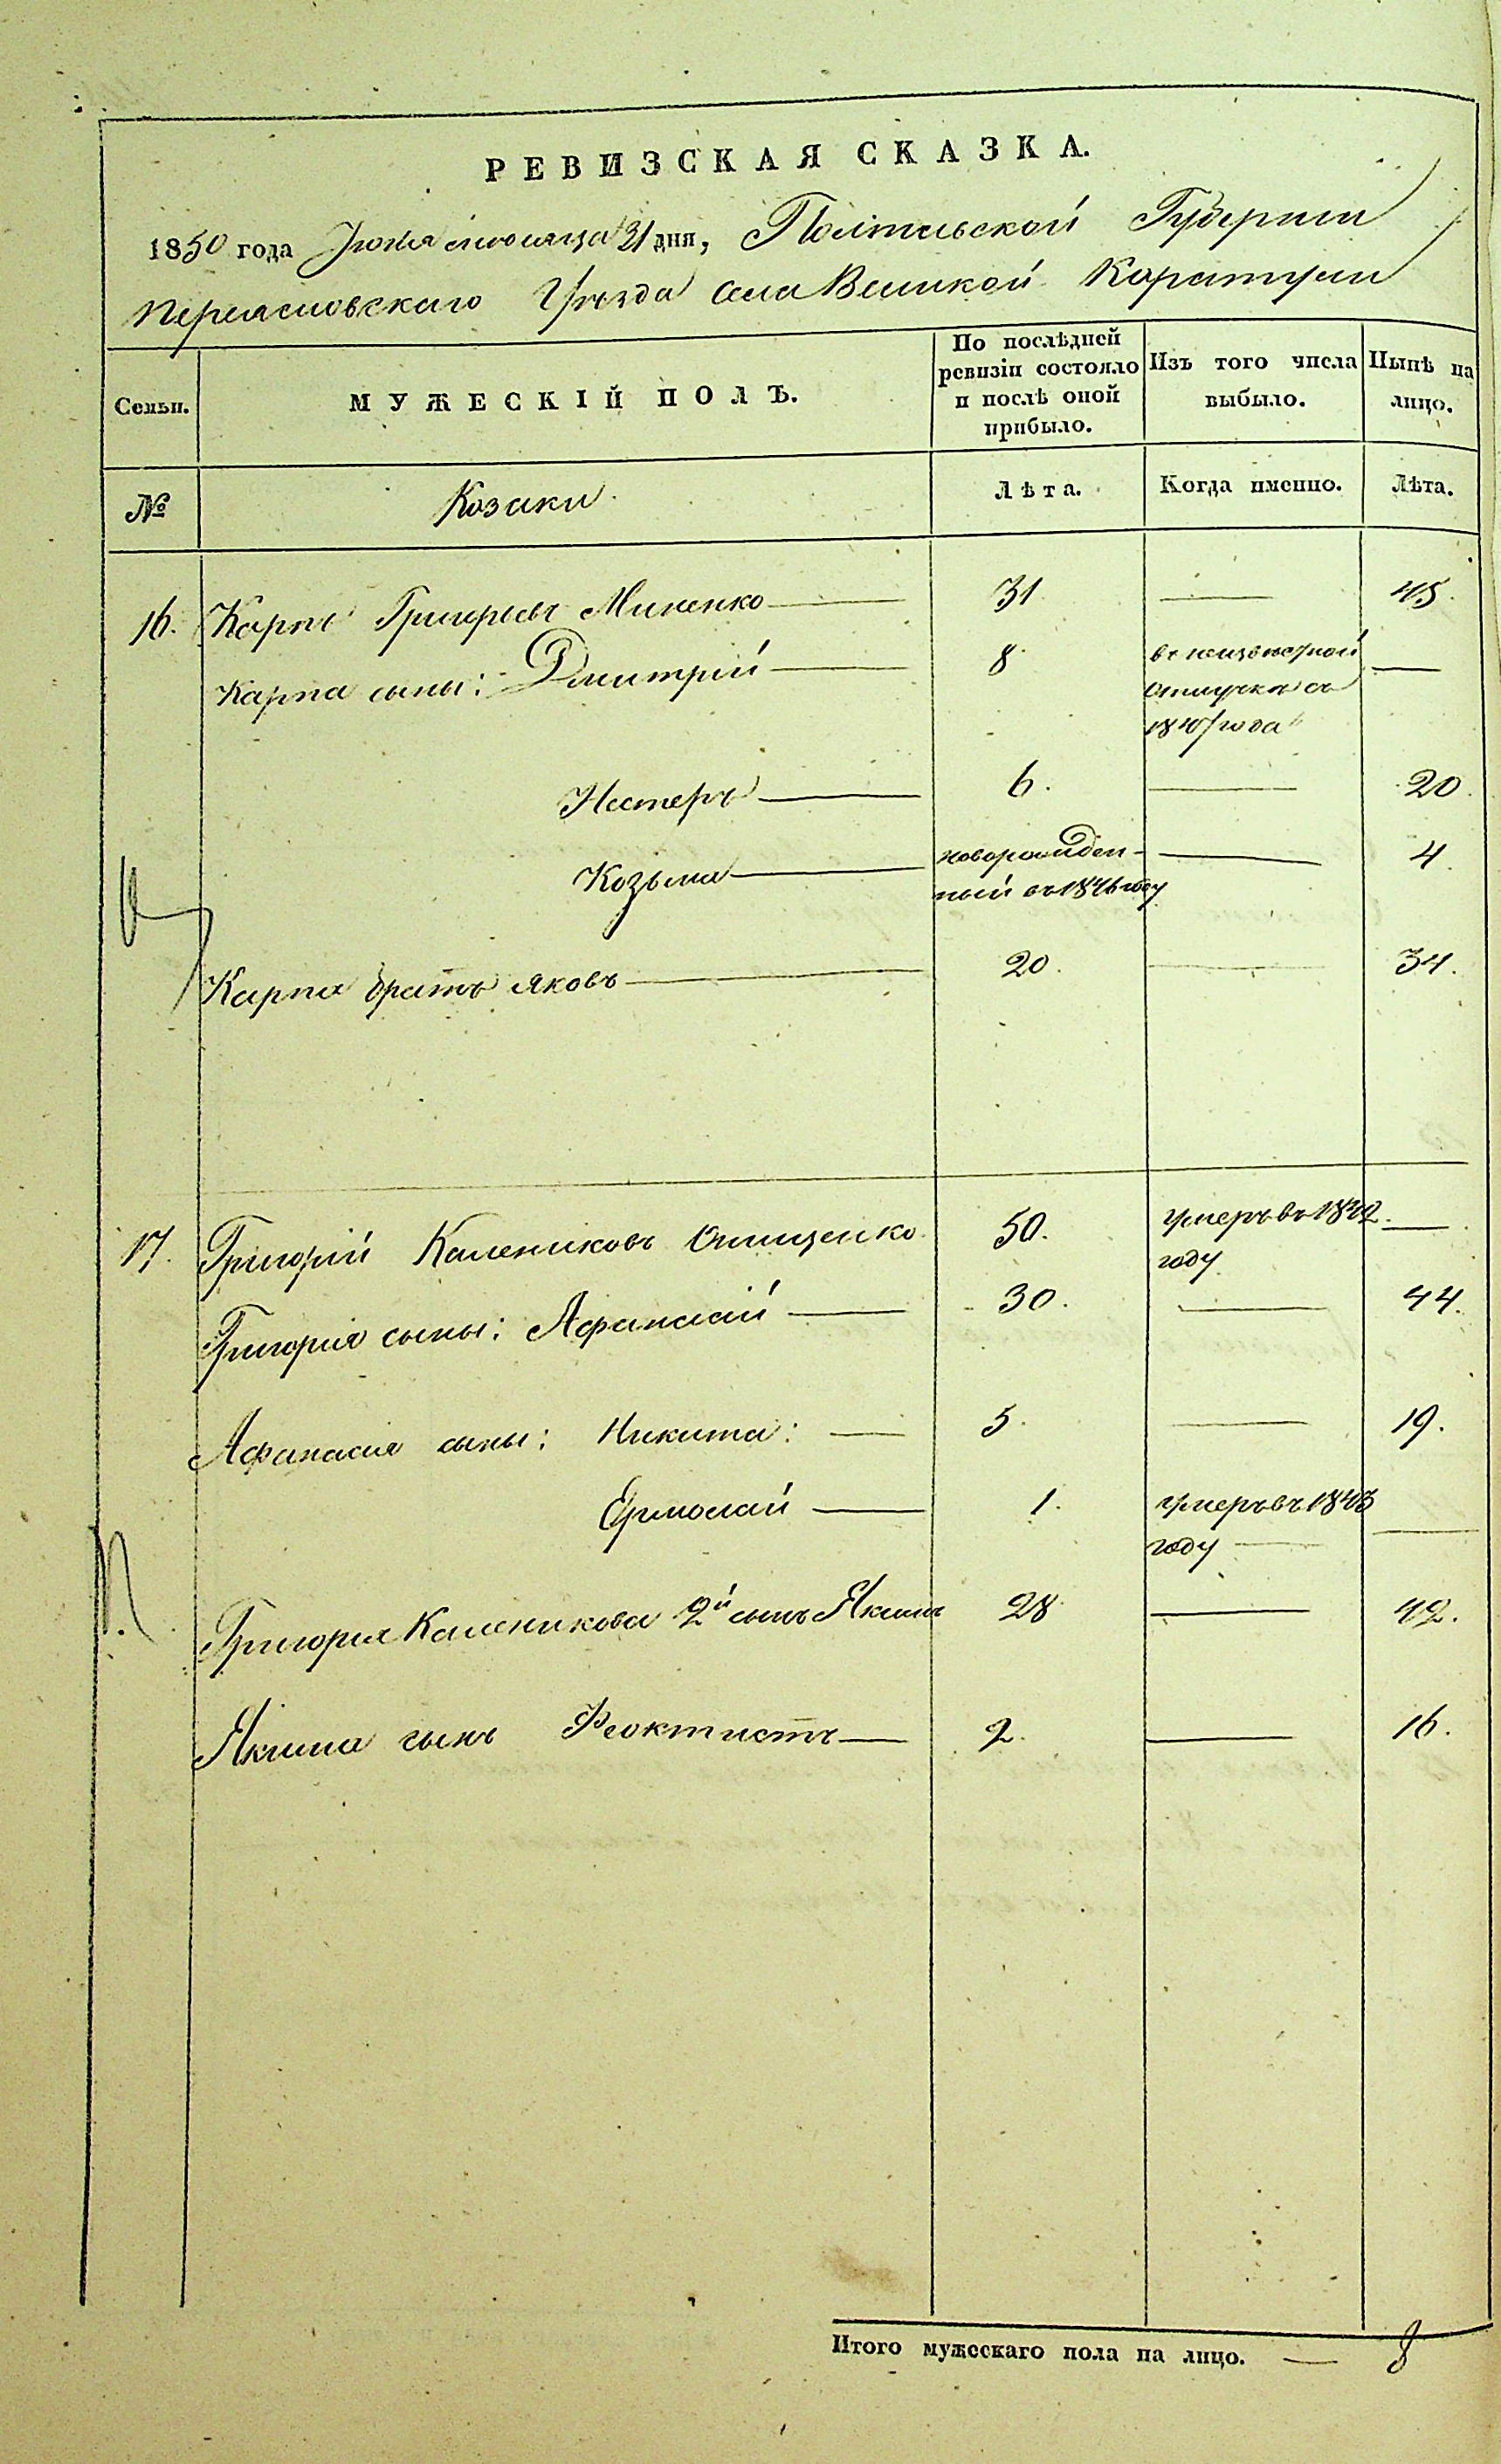 РЕВИЗСКАЯ СКАЗКА.
1850 года Июля месяца 31 дня, Полтавской Губернии
Переясловскаго Уѣзда села Великой Каратули
Семьи.
МУЖЕСКІЙ ПОЛЪ.
По послѣдней ревизіи состояло и послѣ оной прибыло.
Изъ того числа выбыло.
Нынѣ на лицо.
№
Козаки
Лѣта.
Когда именно.
Лѣта.
16. Карпъ Григорьевъ Миненко 31 45.
Карпа сыны: Дмитрій 8 въ неизвестной
отлучкѣ съ
184 года
Нестеръ 6. 20.
Козьма новорожден- 4.
ный въ 1846 году
Карпа братъ Яковъ 20. 34.
17. Григорій Калениковъ Онищенко 50. умеръ въ 1842
году
Григорія сыны: Афанасій 30. 44.
Афанасія сыны: Никита: 5. 19.
Ермолай 1. умеръ въ 1843
году
Григорія Каленикова 2й сынъ Якимъ 28 42.
Якима сынъ Феоктистъ 2. 16.
Итого мужескаго пола на лицо. 8